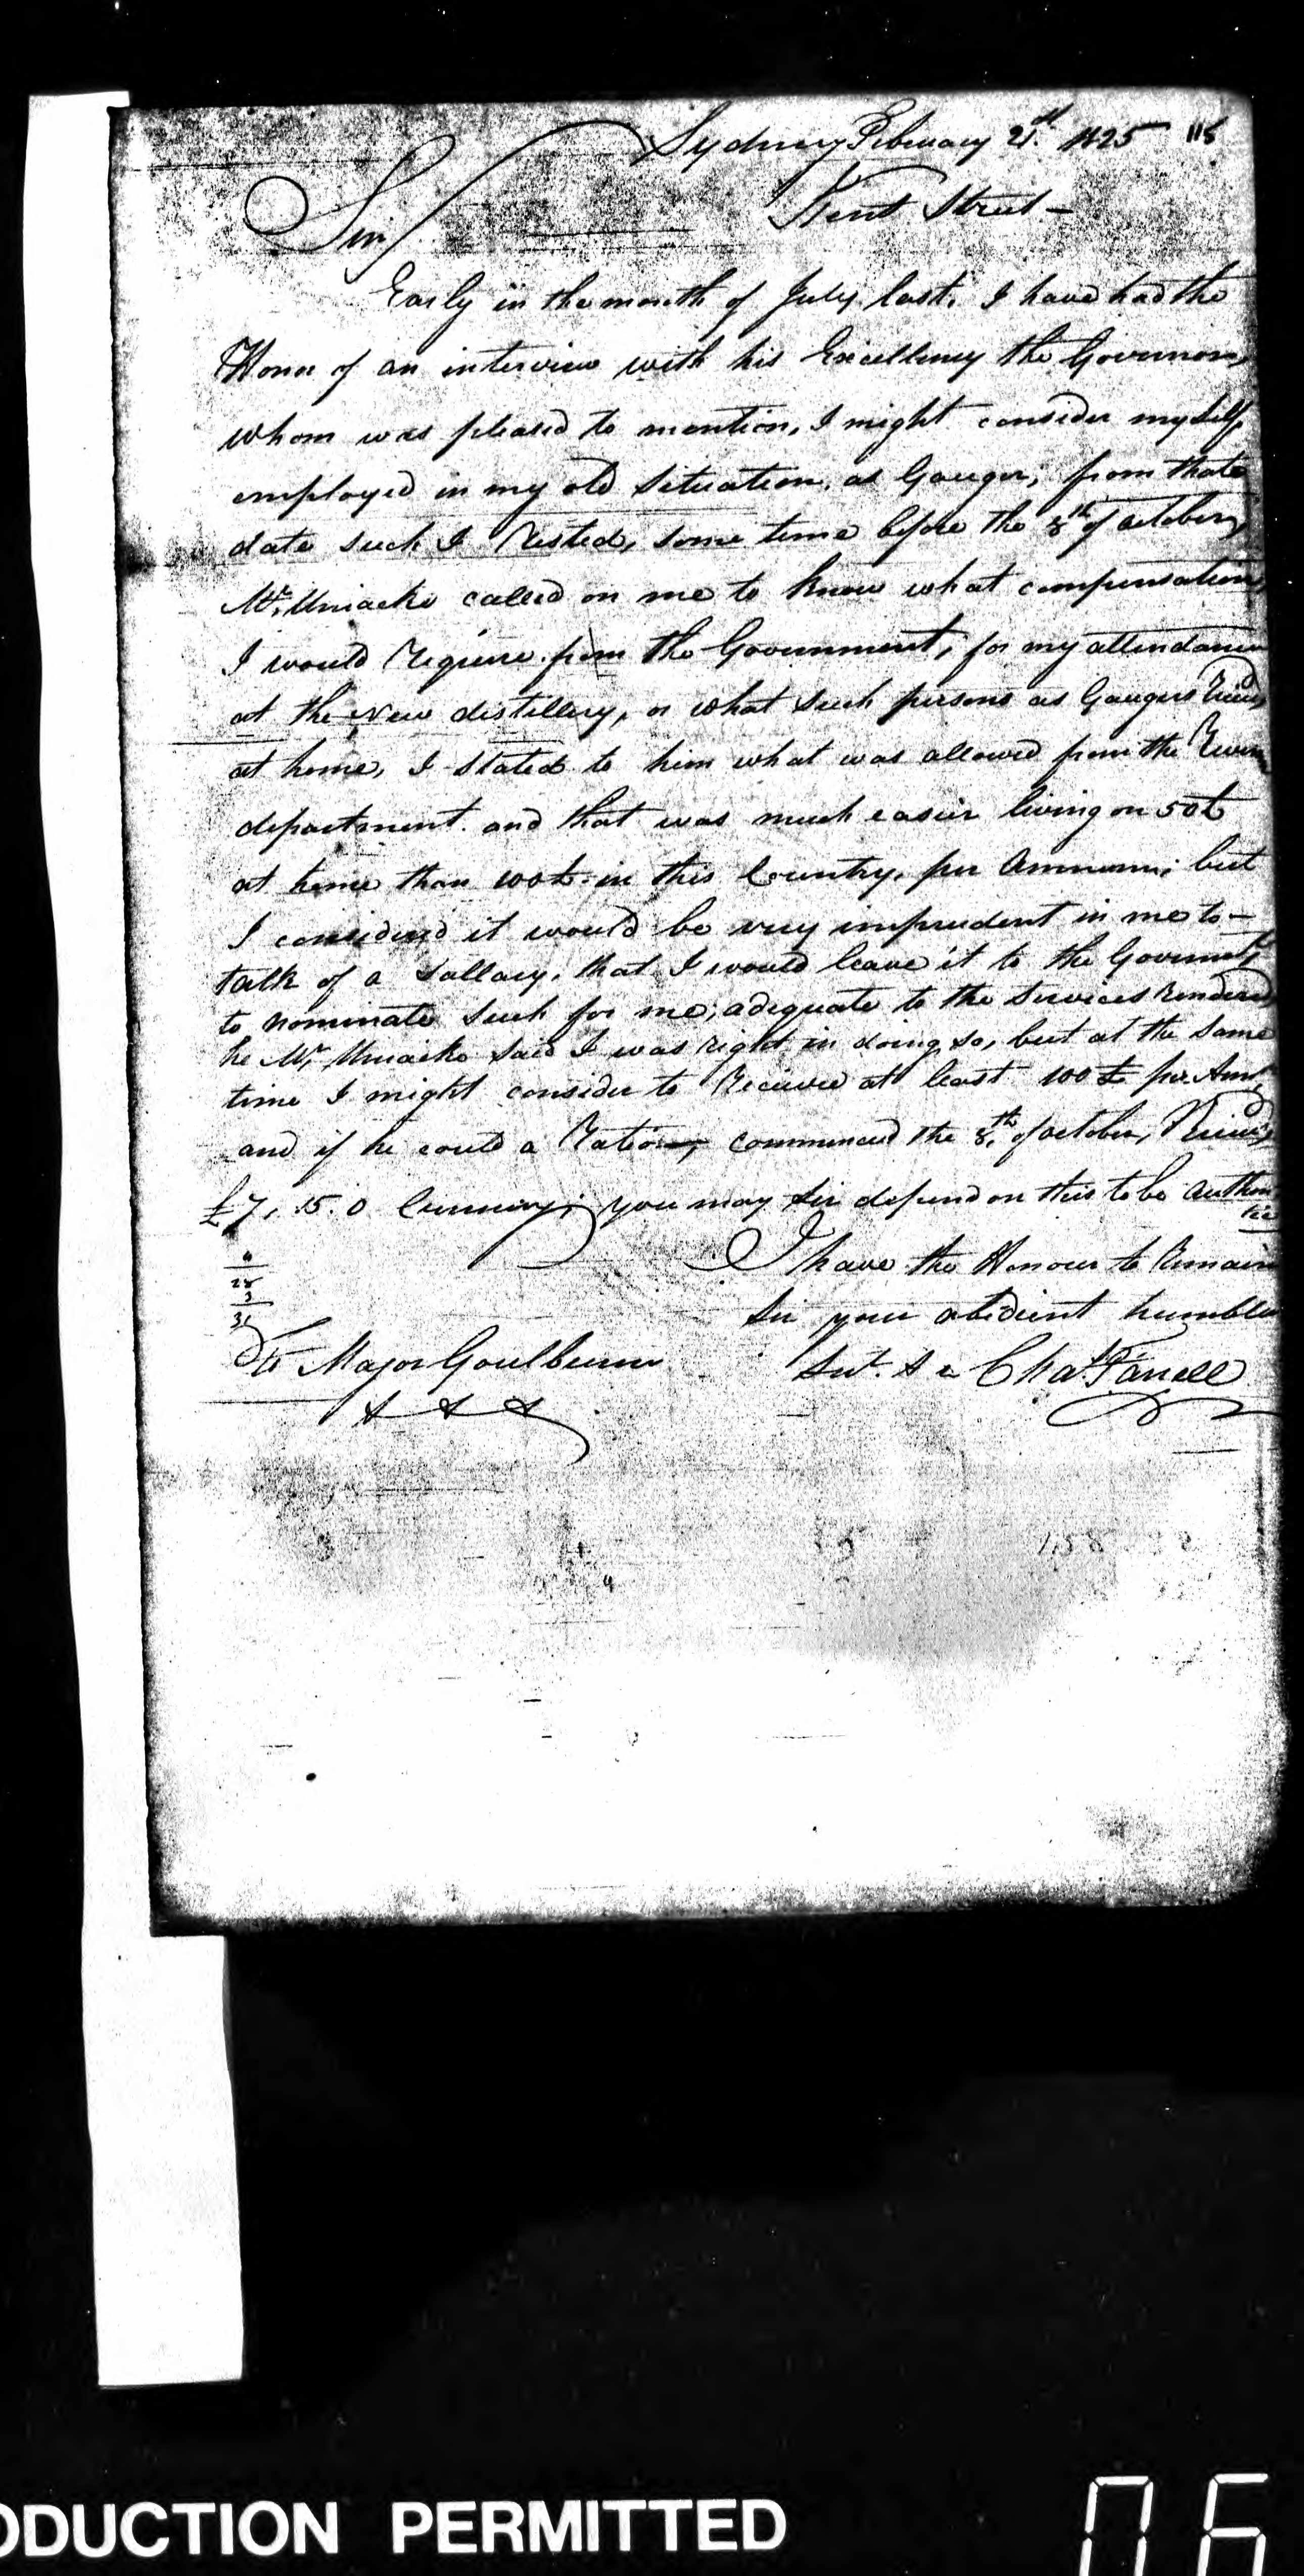 Sydney February 21st. 1825 115
Kent Street -
Sir/
Early in the month of July last. I have had the
Honor of an interview with his Excellency the Governor,
whom was pleased to mention, I might consider myself
employed in my old situation, as Gauger, from that
date such I rested, some time before the 8th of October,
Mr. Uniacke called on me to know what compensation,
I would require from the Government, for my attendance
at the New distillery, or what such persons as Gaugers
at home, I stated to him what was allowed from the
department. and that was much easier living on 50£
at home than 100£. in this Country. per Annum; but
I considered it would be very imprudent in me to -
talk of a Sallary. that I would leave it to the
to nominate such for me, adequate to the services rendered
he Mr. Uniacke said I was right in doing so, but at the same
time I might consider to receive at least 100£ per Anm
and if he could a Ration, commenced the 8th. of October,
£7, 15. 0 Currency; you may Sir depend on this to be authen
tic
I have the Honour to remain
Sir your obedient humble
4
28
3
31
To Major Goulburn
Svt. Chas. Farrell
& & &
ODUCTION PERMITTED
06